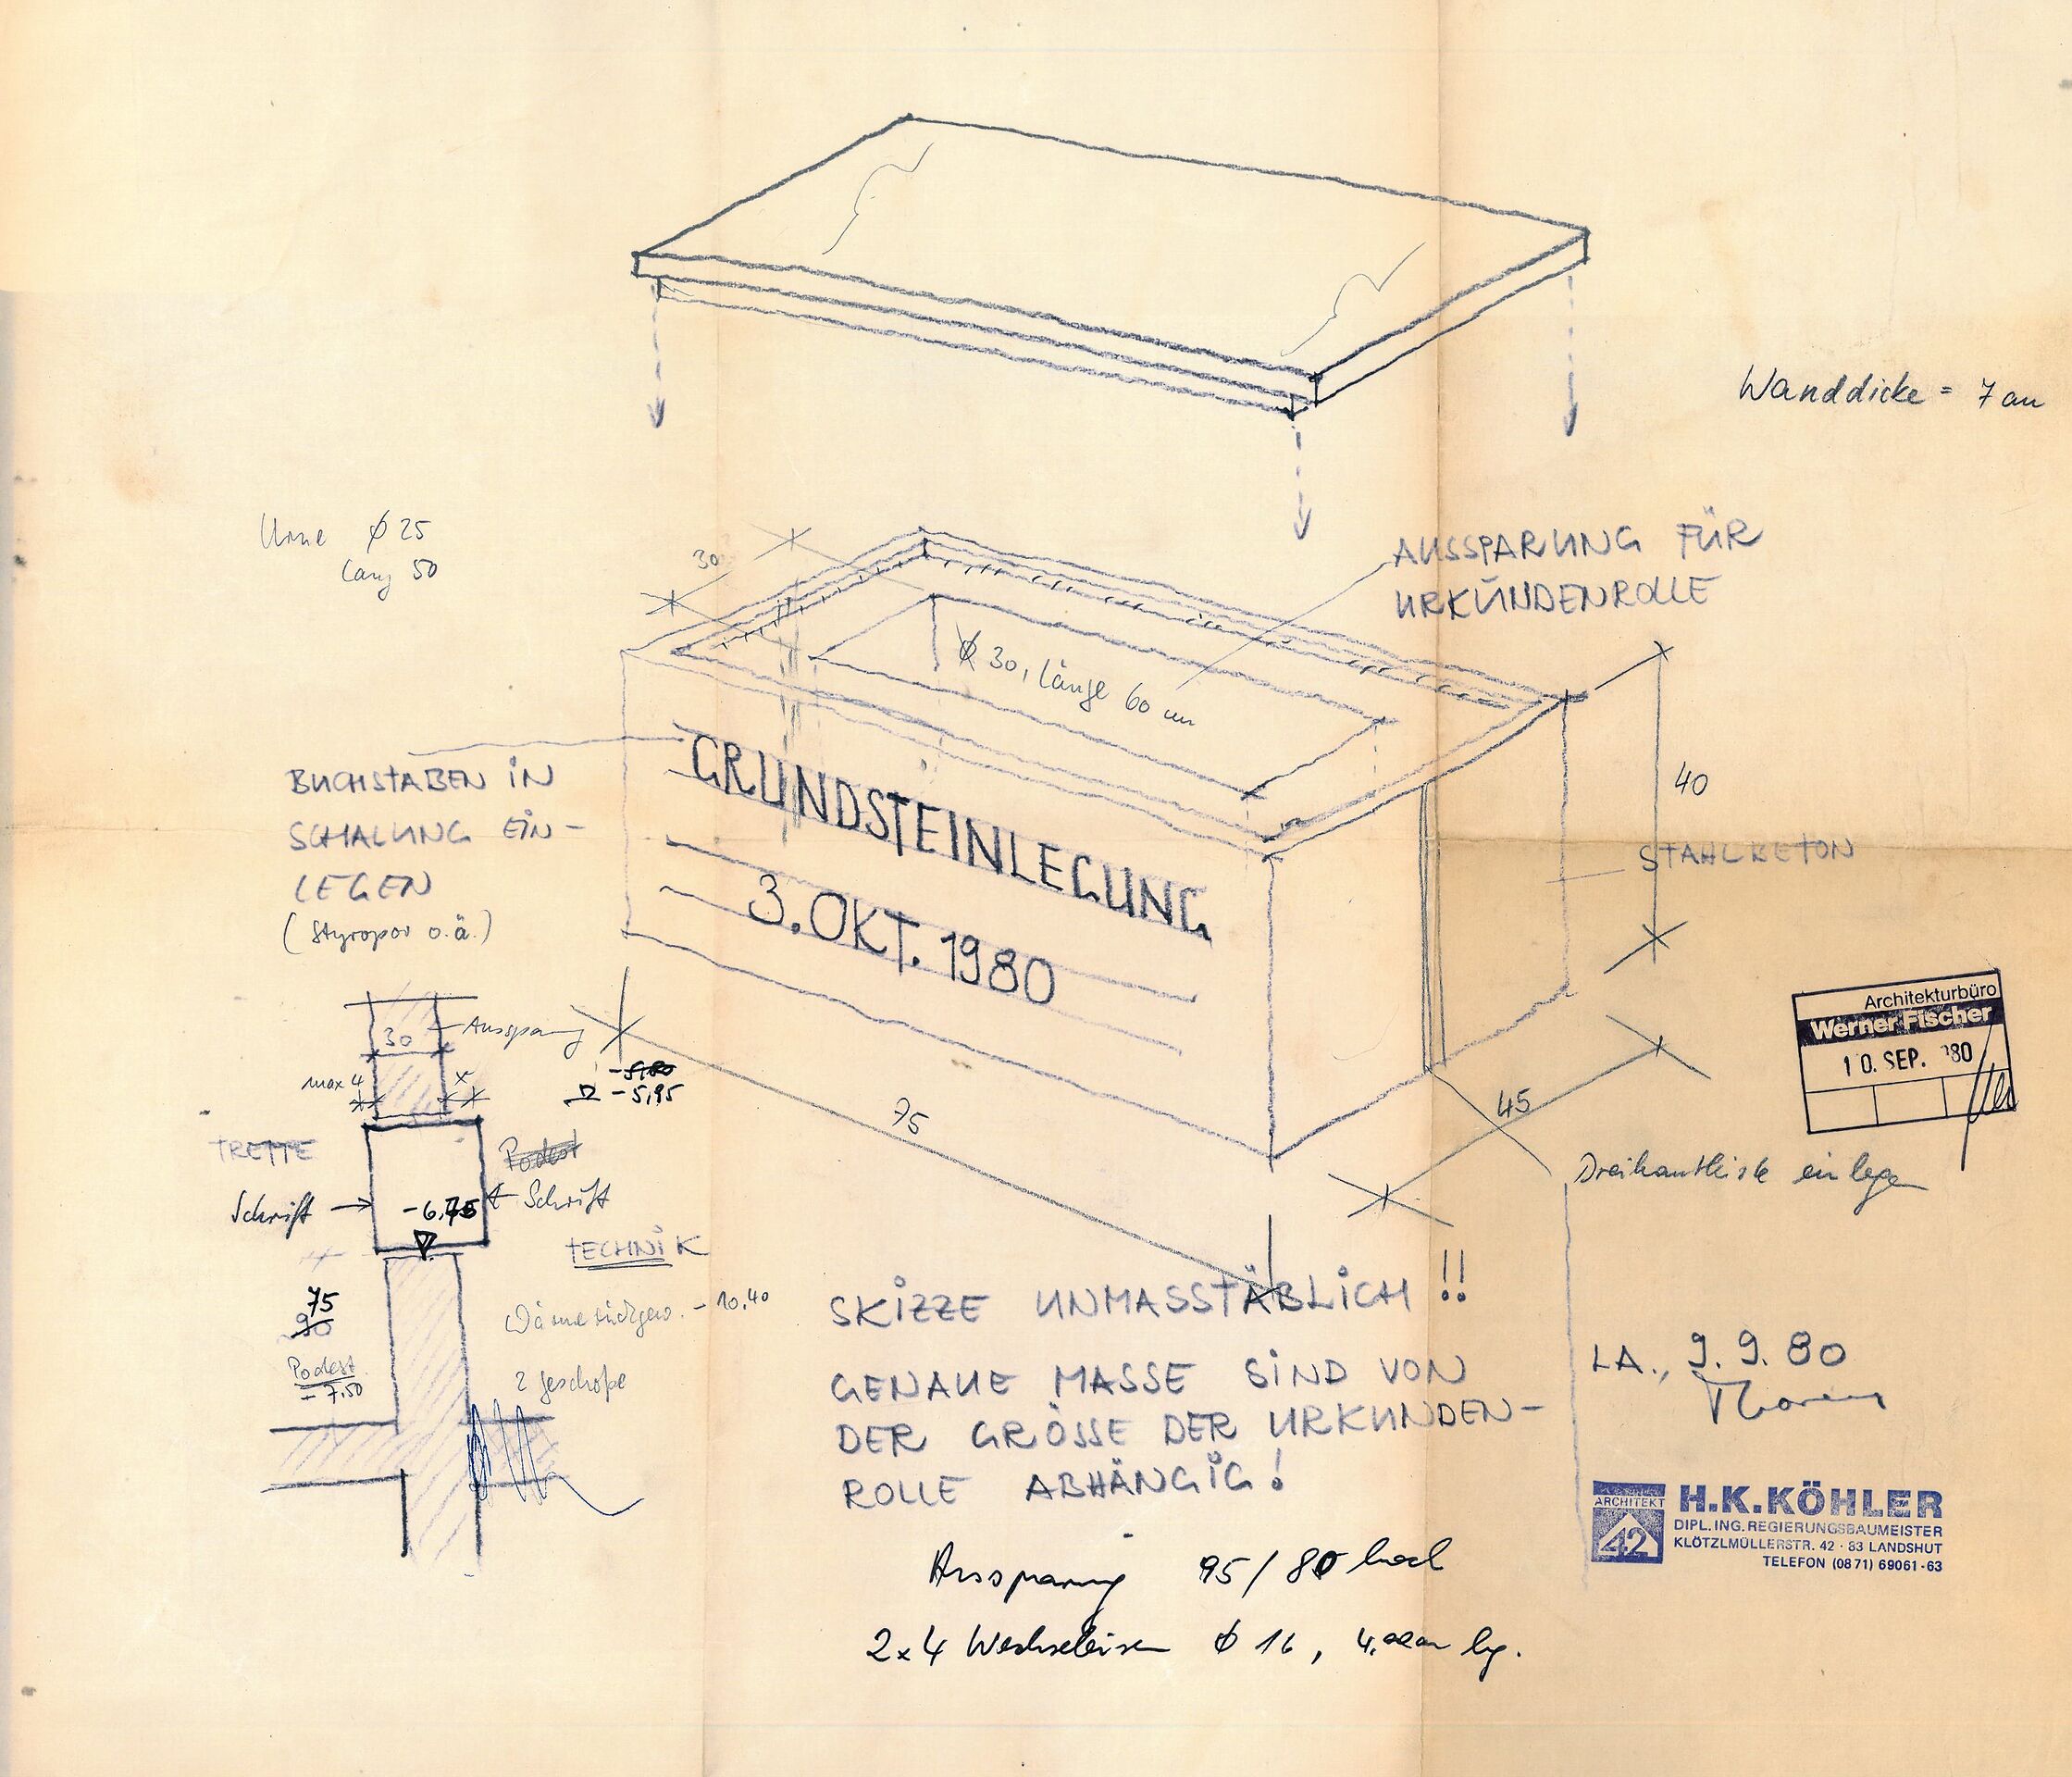 Wanddicke = 7 cm
Urne ϕ 25
lang 50
AUSSPARUNG FÜR
URKUNDENROLLE
30
ϕ 30, Länge 60 cm
40
STAHLBETON
BUCHSTABEN IN
SCHALUNG EIN-
LEGEN
(Styropor o.ä.)
GRUNDSTEINLEGUNG
3. OKT. 1980
Architekturbüro
Werner Fischer
10. SEP. 80
30
Aussparung
max 4
x
-5,80
-5,95
75
45
Dreikantleiste einlegen
TREPPE
Podest
Schrift
-6,75
Schrift
TECHNIK
75
90
Podest
-7,50
Wärmerückgew. -10,40
2 Geschoße
SKIZZE UNMASSTÄBLICH !!
GENAUE MASSE SIND VON
DER GRÖSSE DER URKUNDEN-
ROLLE ABHÄNGIG!
LA., 9. 9. 80
ARCHITEKT
42
H.K.KÖHLER
DIPL.ING.REGIERUNGSBAUMEISTER
KLÖTZLMÜLLERSTR. 42 · 83 LANDSHUT
TELEFON (0871) 69061-63
Aussparung 95/80 hoch
2x4 Wechseleisen ϕ 16, lg.